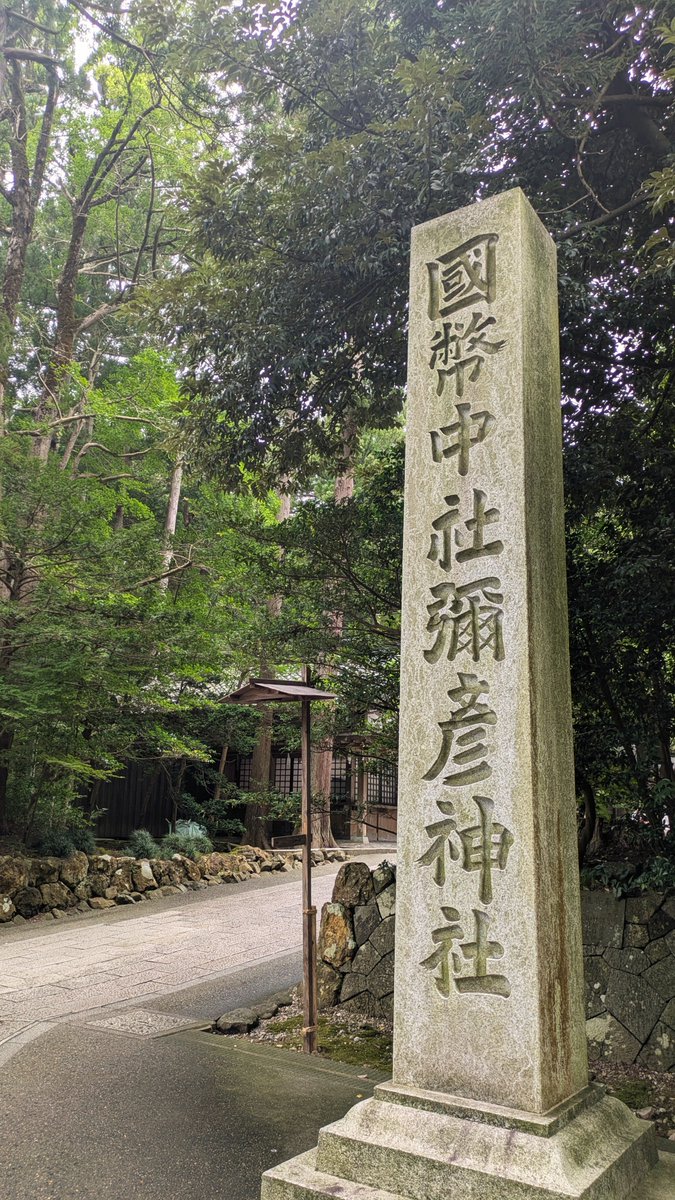 國幣中社彌彦神社